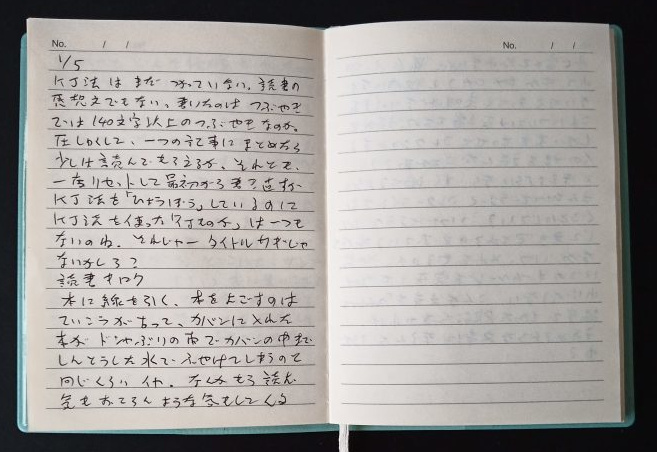 No. / /
No. / /
1/5
KJ法はまだつかっていない。読書の
感想文でもない、書いたのはつぶやき
では140文字以上のつぶやきなのか。
圧しゅくして、一つの記事にまとめたら
少しは読んでもらえるか、それとも、
一度リセットして最初から書き直すか
KJ法を「ひょうぼう」しているのに
KJ法を使った「行もの」は一つも
ないのね。それじゃータイトルサギじゃ
ないかしら?
読書キロク
本に線を引く、本をよごすのは
ていこうがあって、カバンに入れた
本がドシャぶりの雨でカバンの中まで
しんとうした水でふやけてしまうのと
同じくらいイヤ。なんかもう読む
気もおこらんような気もしてくる